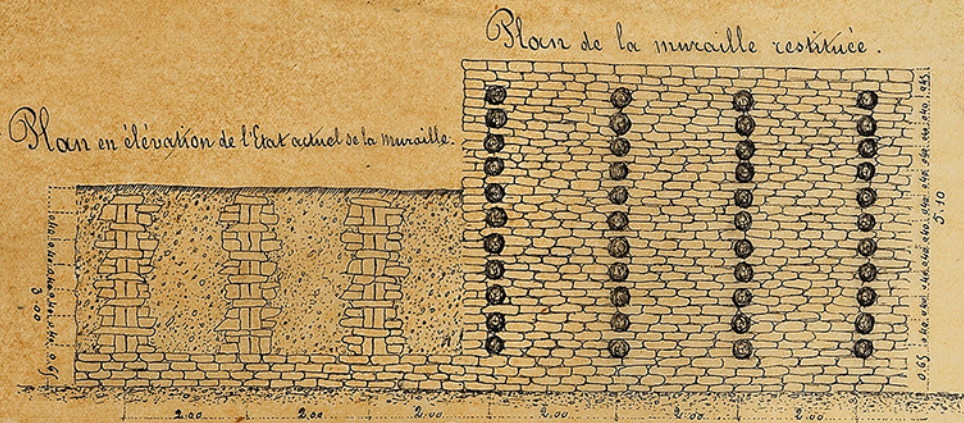 Plan de la muraille restituée.
Plan en élévation de l'Etat actuel de la muraille.
3.00
0.65
5.10
0.65
2.00 2.00 2.00 2.00 2.00 2.00